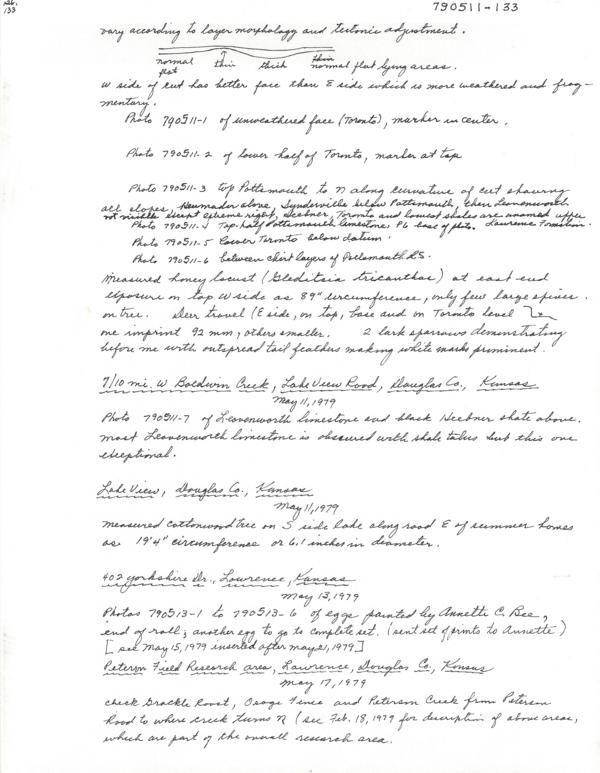 Feb. 133
790511-133
vary according to layer morphology and tectonic adjustment.
normal flat thin thick thin normal flat lying areas.
W side of cut has better face than E side which is more weathered and frag-
mentary.
Photo 790511-1 of unweathered face (Toronto), marker in center.
Photo 790511-2 of lower half of Toronto, marker at top
Photo 790511-3 top Plattsmouth to N along curvature of cut showing
all slopes, Heumader above, Snyderville below Plattsmouth, then Leavenworth
not visible except extreme right, Heebner, Toronto and lowest shales are unnamed upper
Photo 790511-4 Top half Plattsmouth limestone. Pl base of photo. Lawrence Formation.
Photo 790511-5 Lower Toronto below datum
Photo 790511-6 between chert layers of Plattsmouth LS.
Measured honey locust (Gleditsia tricanthos) at east end
exposure on top W side as 89" circumference, only few large spines
on tree. Deer travel (E side, on top, base and on Toronto level
one imprint 92 mm, others smaller. 2 lark sparrows demonstrating
before me with outspread tail feathers making white marks prominent.
7/10 mi. W Baldwin Creek, Lake View Road, Douglas Co., Kansas
May 11, 1979
Photo 790511-7 of Leavenworth limestone and black Heebner shale above.
Most Leavenworth limestone is obscured with shale talus but this one
exceptional.
Lake View, Douglas Co., Kansas
May 11, 1979
Measured cottonwood tree on S side lake along road E of summer homes
as 19'4" circumference or 6.1 inches in diameter.
402 Yorkshire Dr., Lawrence, Kansas
May 13, 1979
Photos 790513-1 to 790513-6 of eggs painted by Annette C. Bee,
end of roll; another egg to go to complete set. (sent set of prints to Annette)
[see May 15, 1979 inserted after May 21, 1979]
Peterson Field Research area, Lawrence, Douglas Co., Kansas
May 17, 1979
Check Grackle Roost, Osage Fence and Peterson Creek from Peterson
Road to where creek turns N (see Feb. 18, 1979 for description of above areas,
which are part of the overall research area.